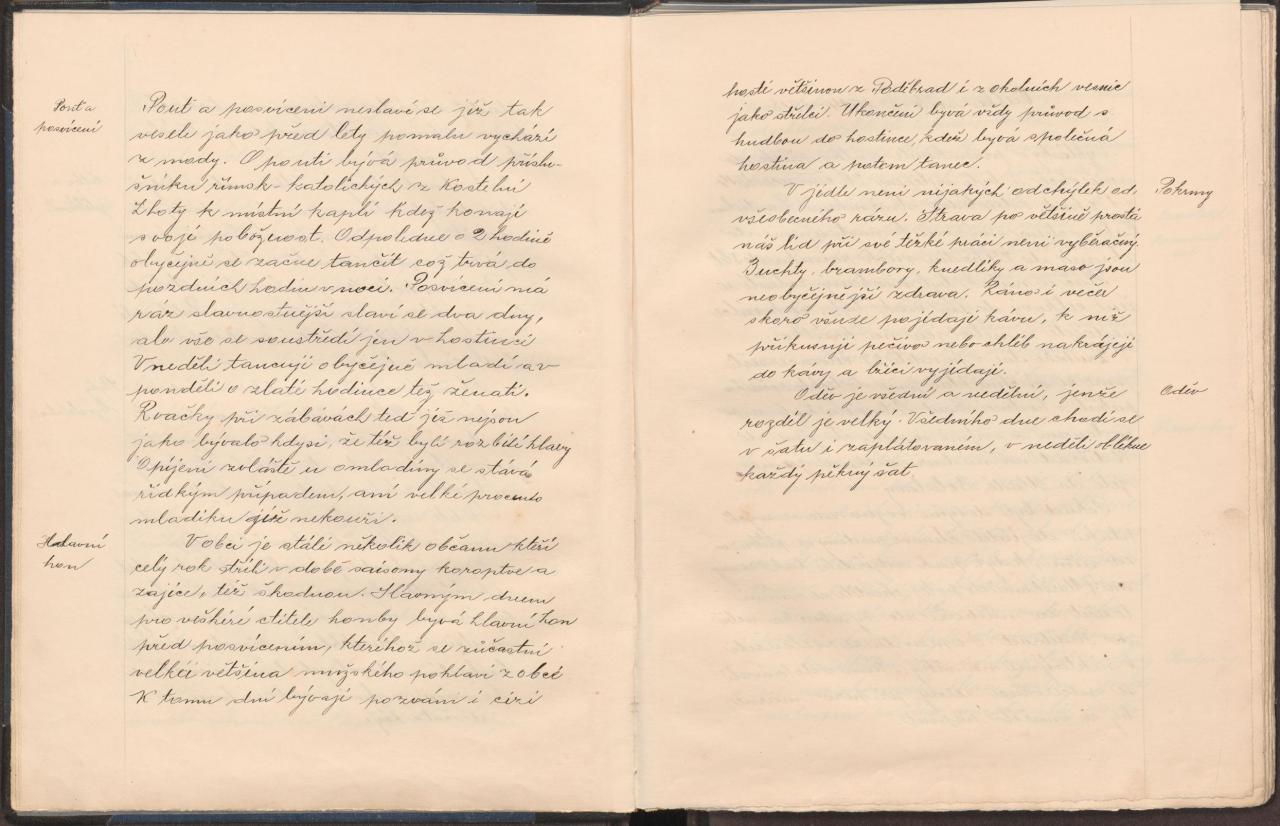 Pouť a
posvícení
Pouť a posvícení neslaví se již tak
vesele jako před lety pomalu vychází
z mody. O pouti bývá průvod příslu-
šníku římsk-katolických z Kostelní
Lhoty k místní kapli kdež konají
svojí pobožnost. Odpoledne o 2 hodině
obyčejně se začne tančít což trvá do
pozdních hodin v noci. Posvícení má
ráz slavnostnější slaví se dva dny,
ale vše se soustředí jen v hostinci
V neděli tancují obyčejně mladí a v
pondělí o zlaté hodince též ženatí.
Rvačky při zábavách teď již nejsou
jako bývalo kdysi, že též byli rozbité hlavy
Opíjení zvláště u omladiny se stává
řídkým případem, ani velké procento
mladíku již nekouří.
Hlavní
hon
V obci je stálé několik občanu kteří
celý rok střílí v době saisony koroptve a
zajíce, též škodnou. Hlavným dnem
pro veškéré ctitele honby bývá hlavní hon
před posvícením, kteréhož se zůčastní
velkéi většina mužského pohlaví z obcé
K tomu dni bývají pozváni i cizí
hosté většinou z Poděbrad i z okolních vesnic
jako střelci. Ukončení bývá vždy průvod s
hudbou do hostince, kdež bývá společná
hostina a potem tanec.
Pokrmy
V jídle není nijakých odchýlek od
všeobecného rázu. Strava po většině prostá
náš lid při své těžké práci není vyběračný.
Buchty, brambory, knedlíky a maso jsou
neobyčejnější zdrava. Ráno i večer
skoro všude pojídají kávu, k níž
přikusují pečivo nebo chléb nakrájejí
do kavy a lžící vyjídají.
Oděv
Oděv je všední a nedělní, jenže
rozděl je velký. Všedního dne chodí se
v šatu i zaplátovaném, v neděli oblékne
každý pěkný šat.